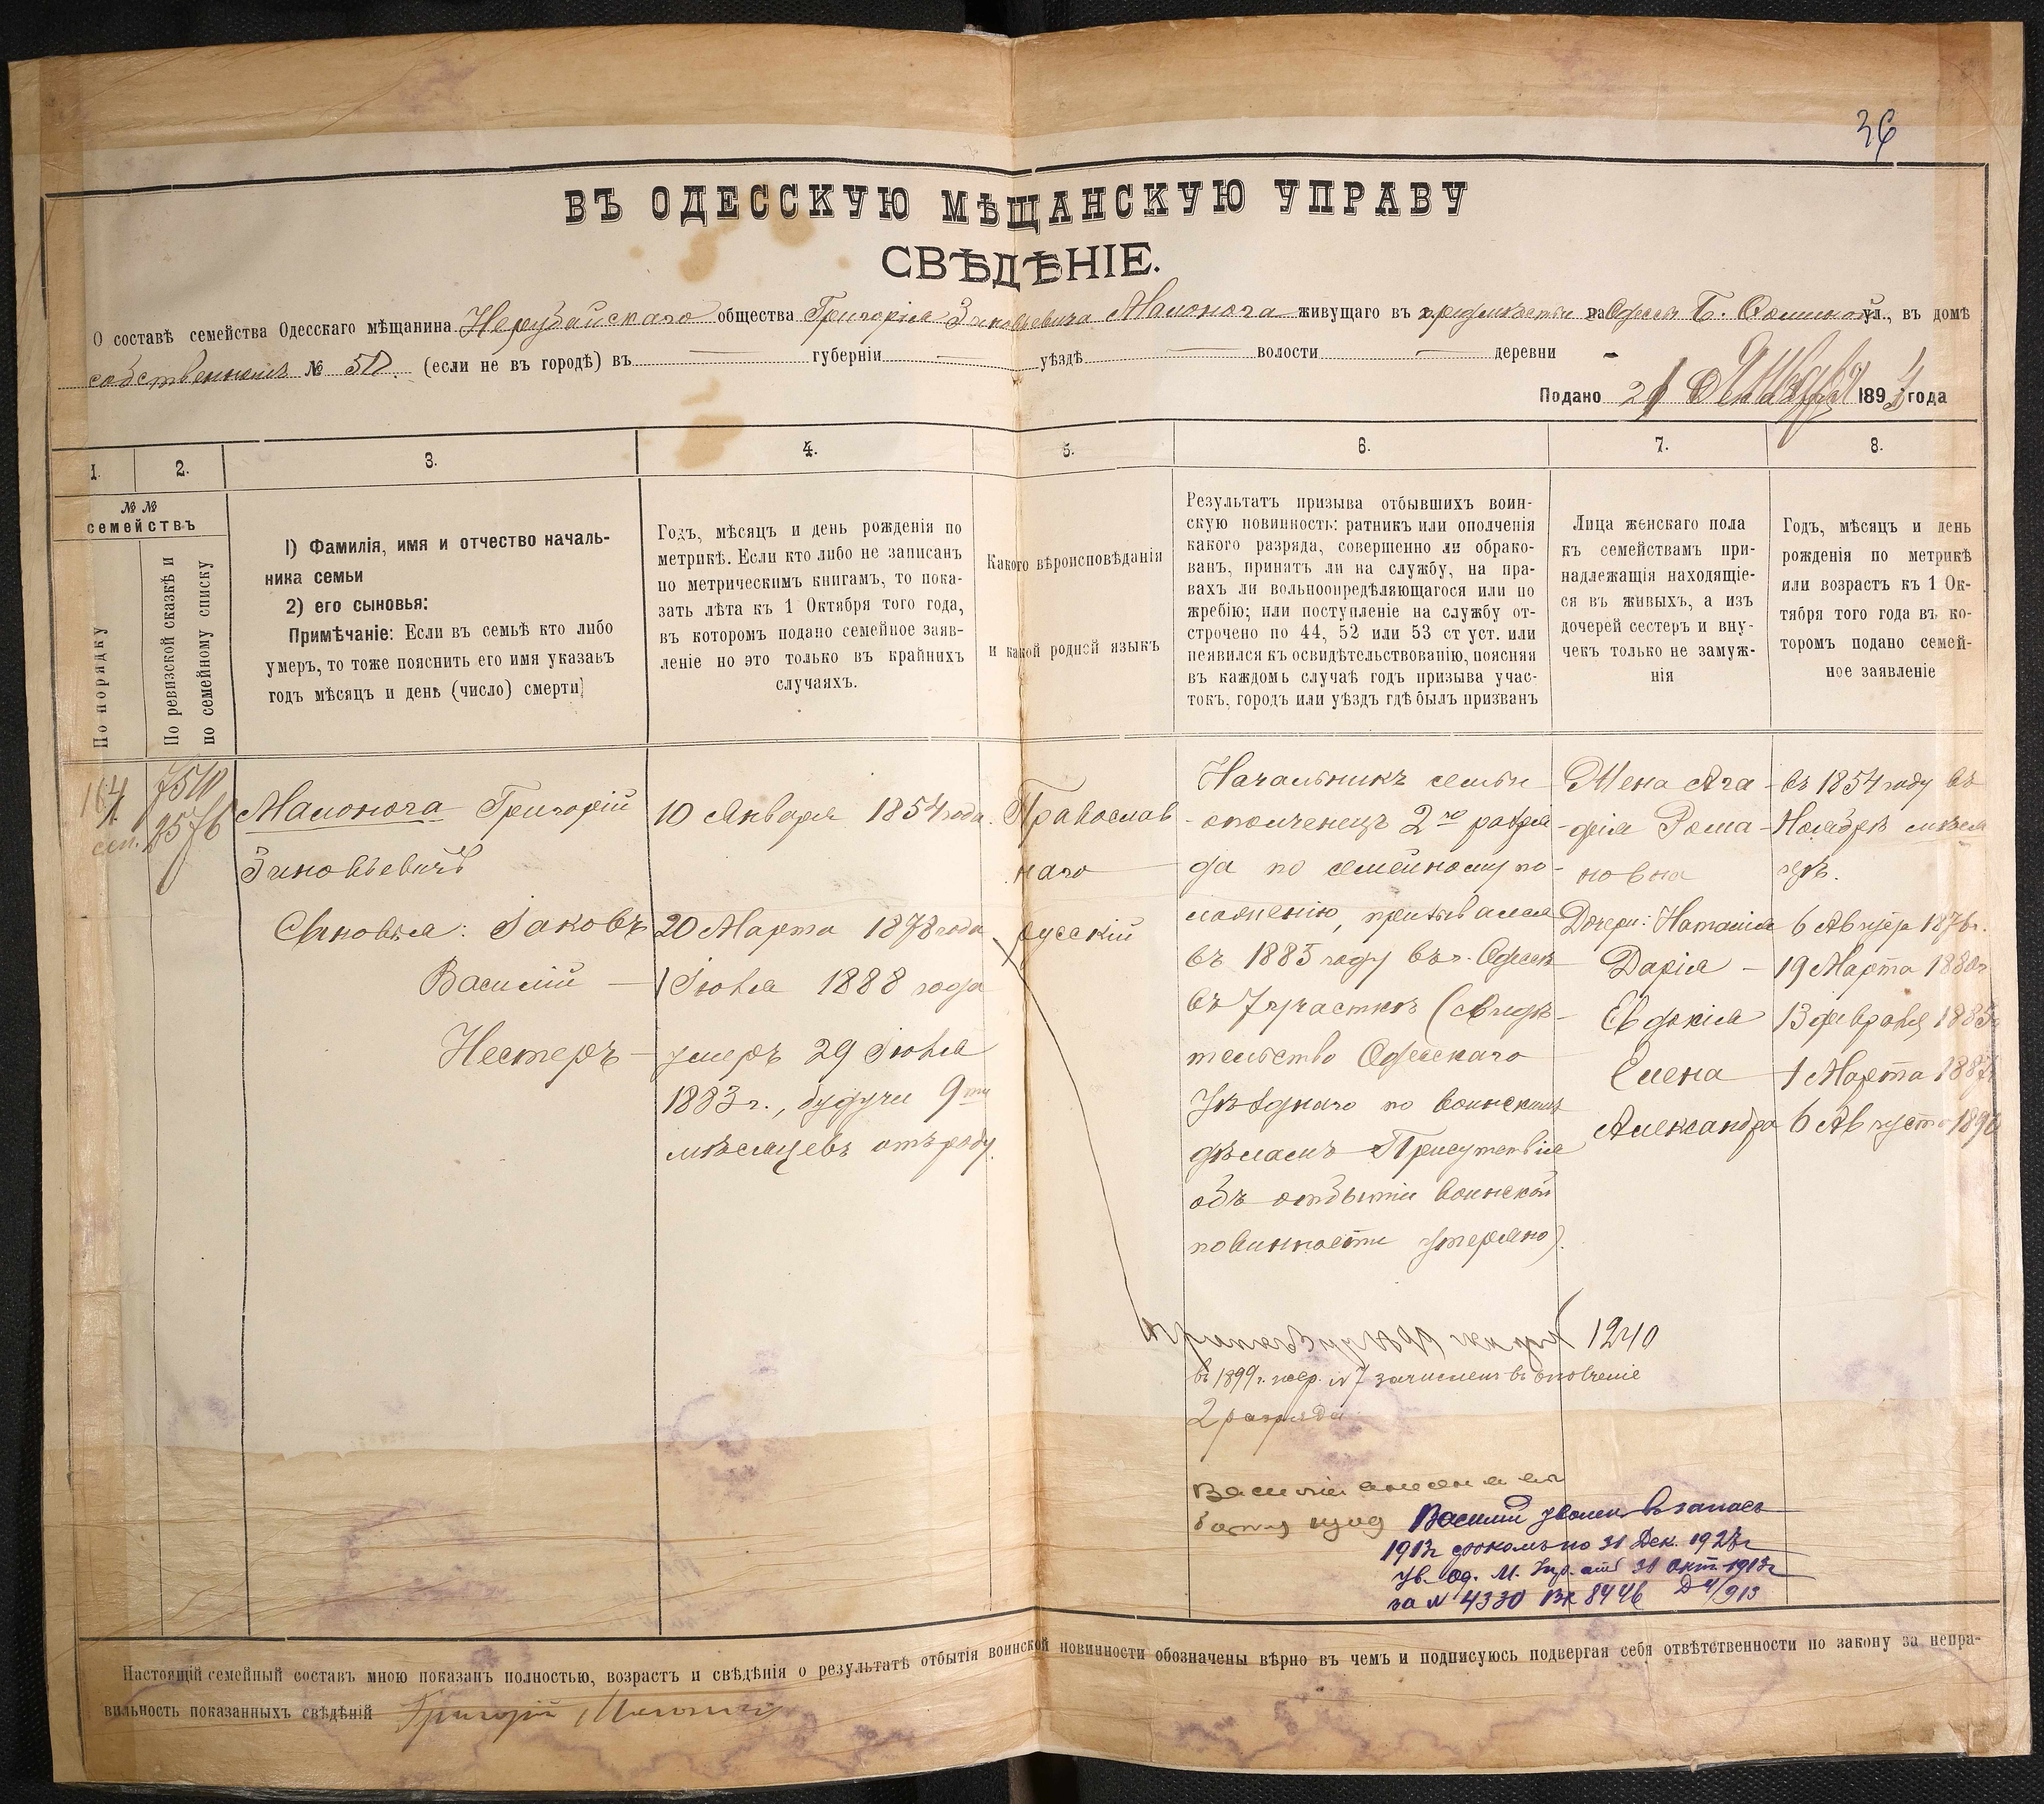 36
ВЪ ОДЕССКУЮ МѢЩАНСКУЮ УПРАВУ
СВѢДѢНІЕ.
О составѣ семейства Одесскаго мѣщанина Нерубайскаго общества Григорія Зиновьевича живущаго въ предмѣстьи г. Одессы ул., въ домѣ
собственномъ № 50. (если не въ городѣ) въ губерніи уѣздѣ волости деревни
Подано 21 189 года
1. 2. 3. 4. 5. 6. 7. 8.
№№ семействъ
По порядку
По ревизской сказкѣ и
по семейному списку
1) Фамилія, имя и отчество началь-
ника семьи
2) его сыновья:
Примѣчаніе: Если въ семьѣ кто либо
умеръ, то тоже пояснить его имя указавъ
годъ мѣсяцъ и день (число) смерти]
Годъ, мѣсяцъ и день рожденія по
метрикѣ. Если кто либо не записанъ
по метрическимъ книгамъ, то пока-
зать лѣта къ 1 Октября того года,
въ которомъ подано семейное заяв-
леніе но это только въ крайнихъ
случаяхъ.
Какого вѣроисповѣданія
и какой родной языкъ
Результатъ призыва отбывшихъ воин-
скую повинность: ратникъ или ополченія
какого разряда, совершенно ли обрако-
ванъ, принятъ ли на службу, на пра-
вахъ ли вольноопредѣляющагося или по
жребію; или поступленіе на службу от-
строчено по 44, 52 или 53 ст уст. или
неявился къ освидѣтельствованію, поясняя
въ каждомъ случаѣ годъ призыва учас-
токъ, городъ или уѣздъ гдѣ былъ призванъ
Лица женскаго пола
къ семействамъ при-
надлежащія находящіе-
ся въ живыхъ, а изъ
дочерей сестеръ и вну-
чекъ только не замуж-
нія
Годъ, мѣсяцъ и день
рожденія по метрикѣ
или возрастъ къ 1 Ок-
тября того года въ ко-
торомъ подано семей-
ное заявленіе
Григорій
Зиновьевичъ
10 Января 1854 года.
Сыновья: Іаковъ
20 Марта 1878 года
Василій — 1 Іюля 1888 года
Нестеръ — умеръ 29 Іюля
1883 г., будучи 9ти
мѣсяцевъ отъ роду.
Православ
наго
русскій
Начальникъ семьи
ополченецъ 2го разря
да по семейному по-
ложенію, призывался
въ 1885 году въ г. Одессѣ
въ 7 участкѣ (свидѣ-
тельство Одесскаго
Уѣзднаго по воинскимъ
дѣламъ Присутствія
объ отбытіи воинской
повинности утеряно).
Жена Ага-
фія Рома-
новна
въ 1854 году въ
Ноябрѣ мѣся
цѣ.
Дочери: Наталія 6 1876 г.
Дарія — 19 Марта 1880 г.
Евдокія 13 февраля
Елена 1 Марта
Александра 6 Августа
1240
въ 1899 г. жер. №7 зачисленъ въ ополченіе
2 разряда
Василій
Василий уволен в запас
1913 г сроком по 31 Дек. 1927 г
Ув. Од. М. Упр. от 31 Окт. 1913 г
за № 4330 Вх 8446
Настоящій семейный составъ мною показанъ полностью, возрастъ и свѣдѣнія о результатѣ отбытія воинской повинности обозначены вѣрно въ чемъ и подписуюсь подвергая себя отвѣтственности по закону за непра-
вильность показанныхъ свѣдѣній Григорій